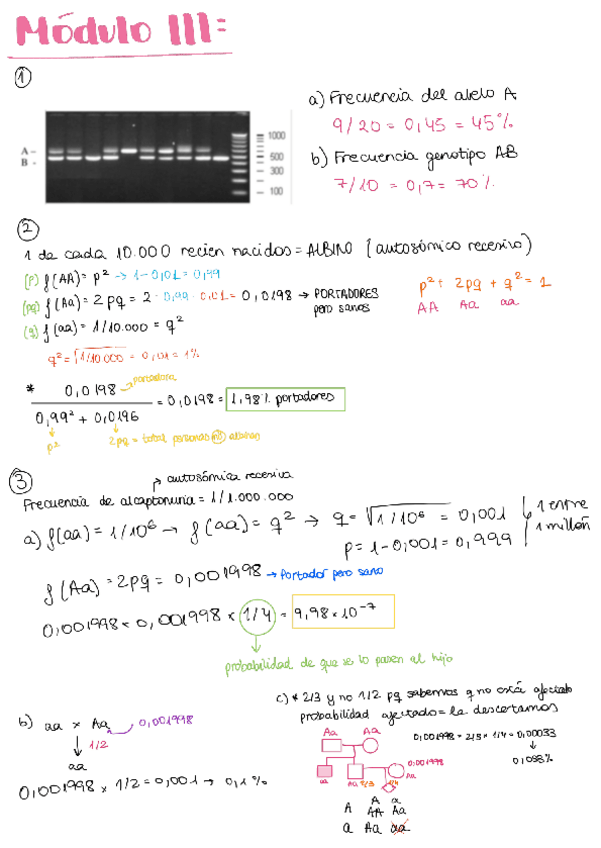 Módulo III:
①
A -
B -
1000
500
300
100
a) Frecuencia del alelo A
9/20 = 0,45 = 45%
b) Frecuencia genotipo AB
7/10 = 0,7 = 70%
②
1 de cada 10.000 recien nacidos = ALBINO (autosómico recesivo)
(p) f(AA) = p² → 1-0,01 = 0,99
(pq) f(Aa) = 2pq = 2 · 0,99 · 0,01 = 0,0198 → PORTADORES pero sanos
(q) f(aa) = 1/10.000 = q²
p² + 2pq + q² = 1
AA Aa aa
q² = √1/10.000 = 0,01 = 1%
* 0,0198 → portadora
0,99² + 0,0196
= 0,0198 = 1,98% portadores
p²
2pq = total personas no albinas
③
autosómica recesiva
Frecuencia de alcaptonuria = 1/1.000.000
a) f(aa) = 1/10⁶ → f(aa) = q² → q = √1/10⁶ = 0,001
p = 1-0,001 = 0,999
1 entre
1 millón
f(Aa) = 2pq = 0,001998 → Portador pero sano
0,001998 × 0,001998 × 1/4 = 9,98 × 10⁻⁷
probabilidad de que se lo pasen al hijo
b) aa × Aa 0,001998
1/2
aa
0,001998 × 1/2 = 0,001 → 0,1%
c) * 2/3 y no 1/2 pq sabemos q no está afectado
probabilidad afectado = la descartamos
Aa Aa
0,001998 × 2/3 × 1/4 = 0,00033
0,033%
0,001998
aa Aa 2/3 1/4 Aa
A a
A AA Aa
a Aa aa